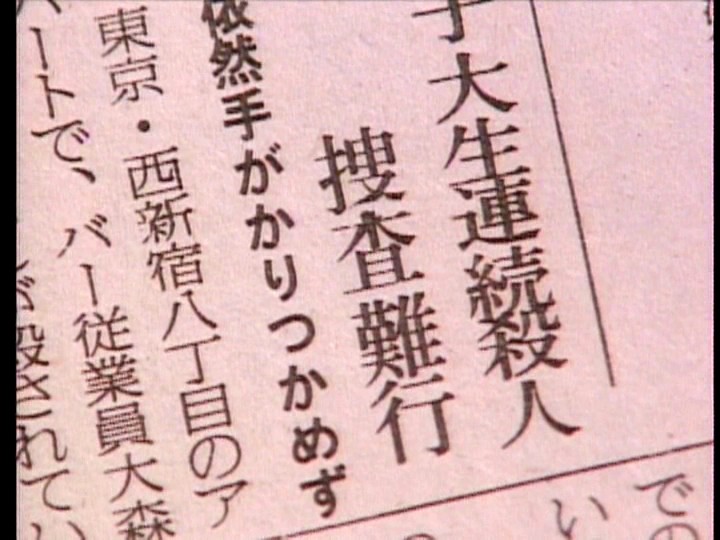 子大生連続殺人
捜査難行
依然手がかりつかめず
東京・西新宿八丁目のア
パートで、バー従業員大森
が殺されてい
での
い